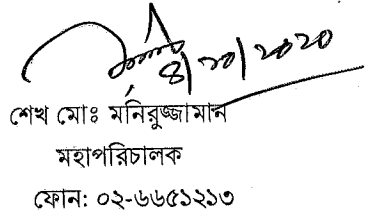 ৪/১০/২০২০
শেখ মোঃ মনিরুজ্জামান
মহাপরিচালক
ফোন: ০২-৬৬৫১২১৩